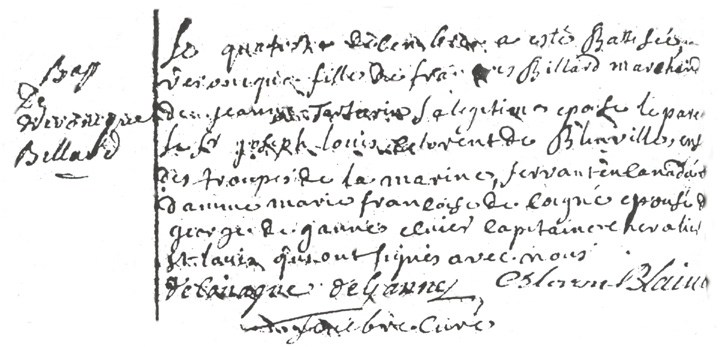 Bap
De
veronique
Billard
Le quatriesme decembre a esté Batisée
veronique fille de françois Billard marchand
de jeanne Tartarin sa legitime epouse le parr
le Sr joseph louis celoront de Blinville
des troupes de la marine servant en Canada
damme marie françoise de loigné epouse d
george de gannes capitaine chevalier
st. louis qui ont signés avec nous
degannes Blain
curé